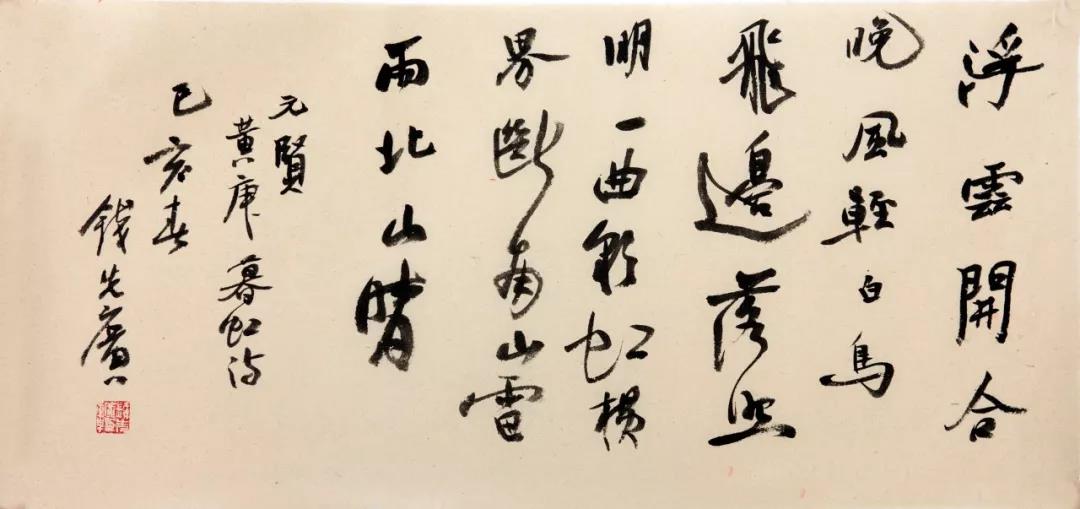 浮雲開合
晚風輕白鳥
飛邊落照
明一曲彩虹橫
界斷南山雷
雨北山晴
元賢
黃庚暮虹詩
己亥春
錢先廣